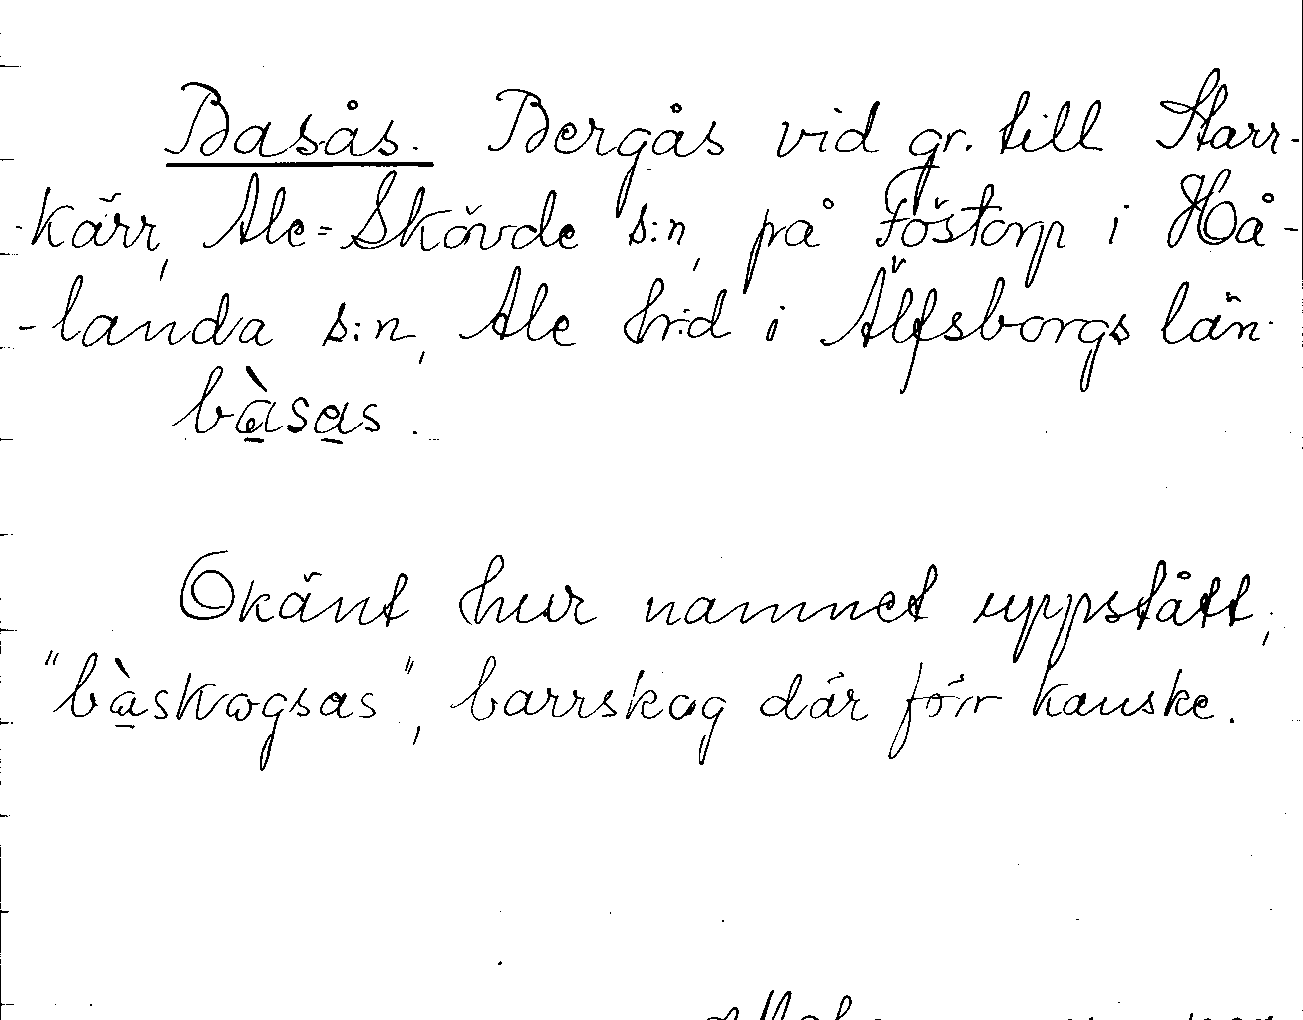 Basås. Bergås vid gr. till Starr-
-kärr, Ale-Skövde s:n, på Föstorp i Hå-
-landa s:n, Ale hr:d i Älfsborgs län.
bàsas.
Okänt hur namnet uppstått,
"bàskogsas", barrskog där förr kanske.